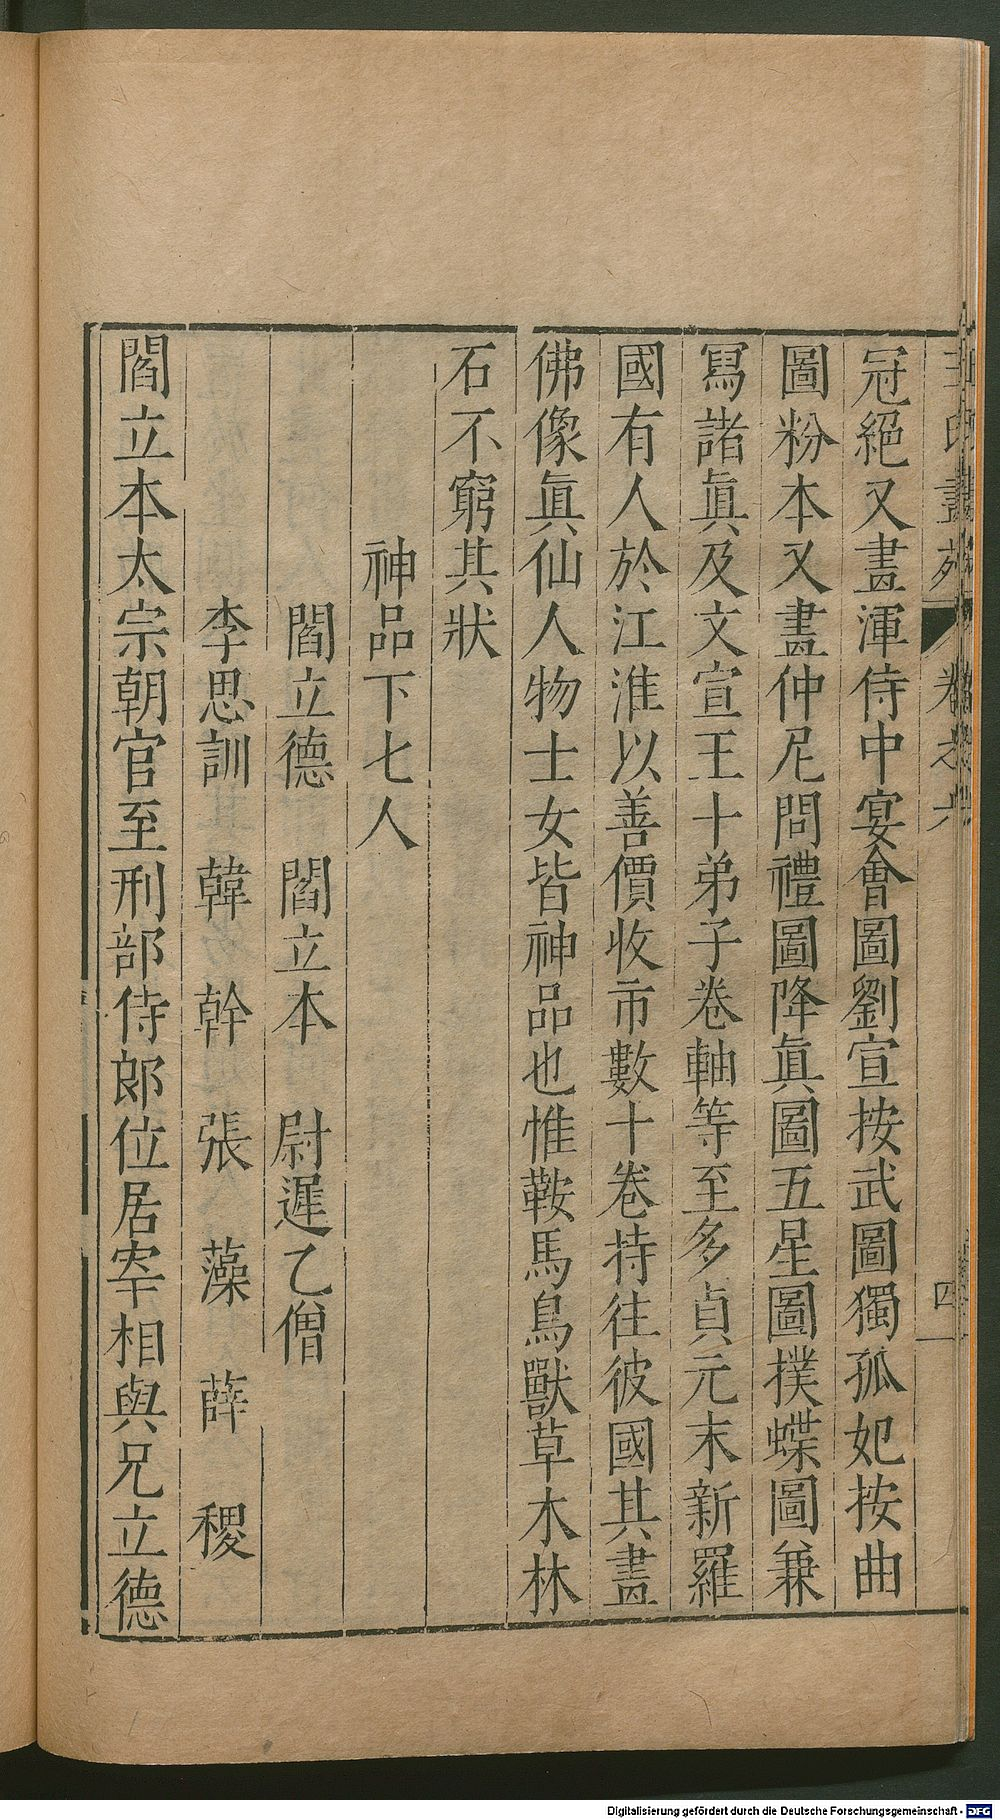 王氏畫苑 卷之六 四
冠絕又畫渾侍中宴會圖劉宣按武圖獨孤妃按曲
圖粉本又畫仲尼問禮圖降眞圖五星圖撲蝶圖兼
寫諸眞及文宣王十弟子卷軸等至多貞元末新羅
國有人於江淮以善價收市數十卷持往彼國其畫
佛像眞仙人物士女皆神品也惟鞍馬鳥獸草木林
石不窮其狀
神品下七人
閻立德 閻立本 尉遲乙僧
李思訓 韓幹 張藻 薛稷
閻立本太宗朝官至刑部侍郎位居宰相與兄立德
Digitalisierung gefördert durch die Deutsche Forschungsgemeinschaft - DFG